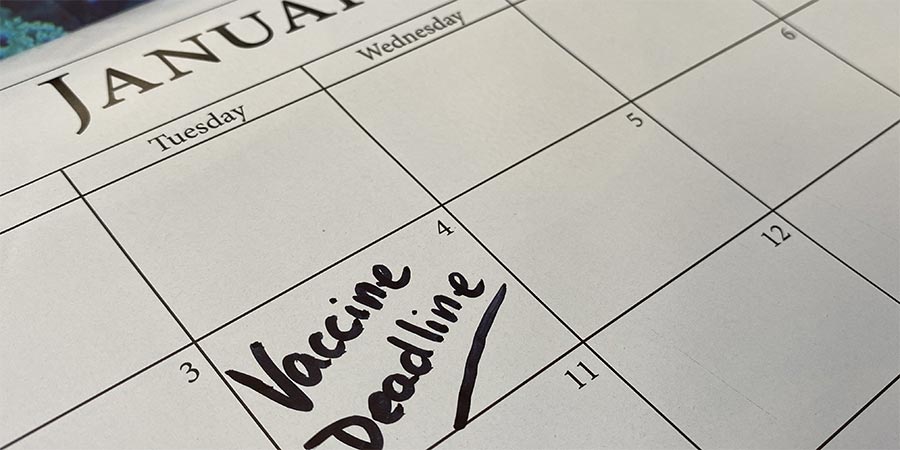 JANUAR
Tuesday Wednesday
3 4 5 6
Vaccine
Deadline
11 12